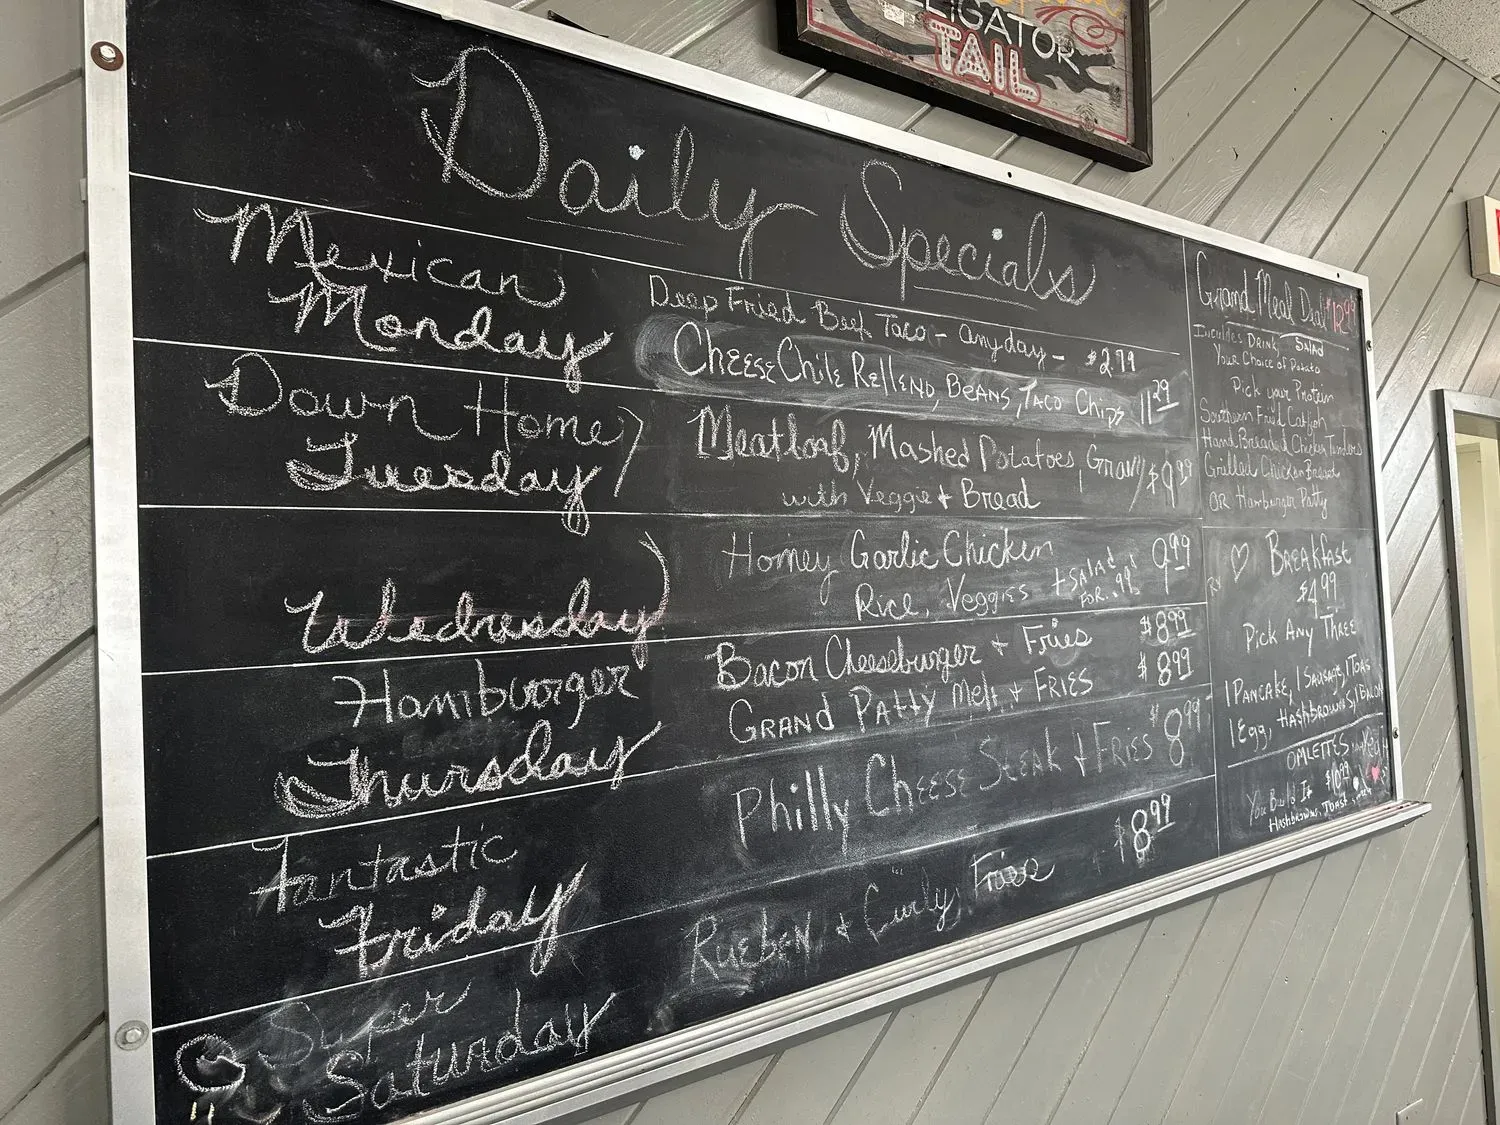 ALLIGATOR
TAIL
Daily Specials
Mexican
Monday
Deep Fried Beef Taco - anyday - $2.79
Cheese Chile Rellend, Beans, Taco Chips 11.29
Down Home
Tuesday
Meatloaf, Mashed Potatoes, Gravy $9.99
with Veggie + Bread
Wednesday
Honey Garlic Chicken 9.99
Rice, Veggies + Salad
For .99
Hamburger
Thursday
Bacon Cheeseburger + Fries $8.99
Grand Patty Melt + Fries $8.99
Fantastic
Friday
Philly Cheese Steak + Fries $8.99
Super
Saturday
Rueben + Curly Fries $8.99
Grand Meal Deal $12.99
Includes Drink, Salad
Your Choice of Potato
Pick your Protein
Southern Fried Catfish
Hand Breaded Chicken Tenders
Grilled Chicken Breast
OR Hamburger Patty
♡ Breakfast
$4.99
Pick Any Three
1 Pancake, 1 Sausage, 1 Toast
1 Egg, Hashbrowns, 1 Bacon
Omlettes
You Build It $10.99
Hashbrowns, Toast